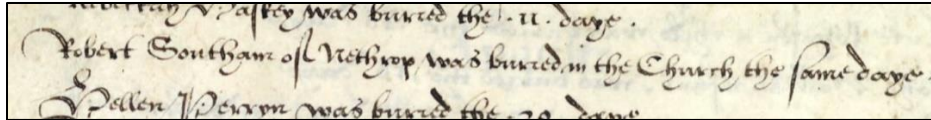 was buried the .11. daye.
Robert Southam of Nethrop was buried in the Church the same daye.
Hellen Perryn was buried the .20. daye